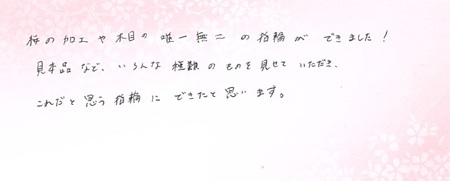 桜の加工や木目の唯一無二の指輪ができました！
見本品など、いろんな種類のものを見せていただき、
これだと思う指輪にできたと思います。